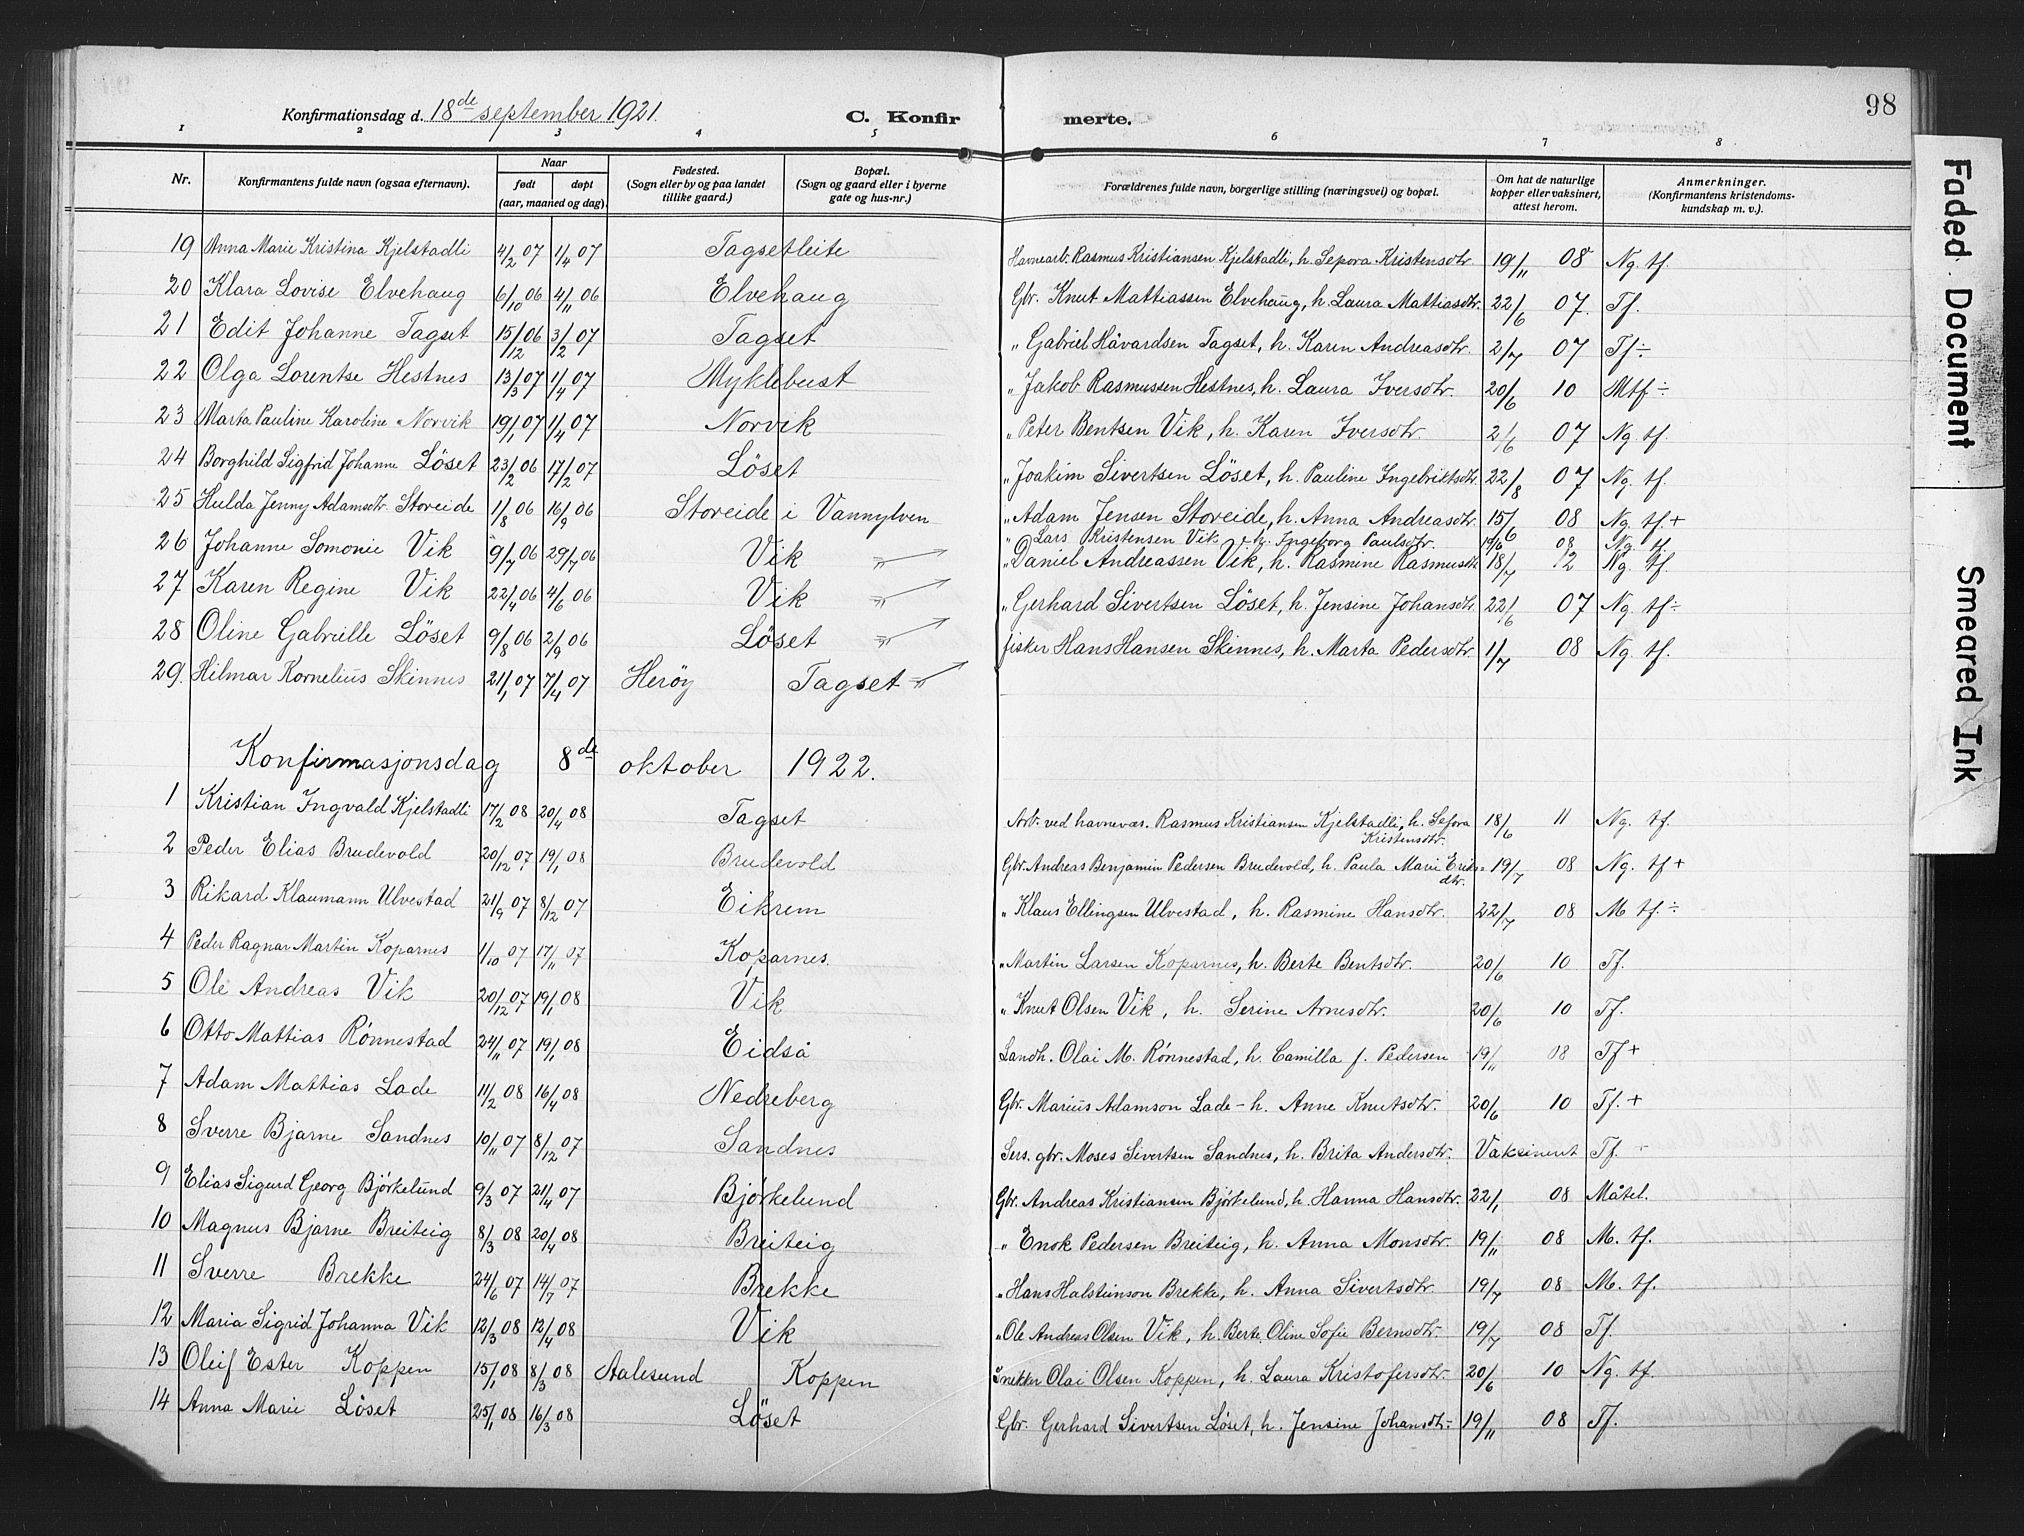 98
Konfirmationsdag d. 18de september 1921.
C. Konfirmerte.
1 2 3 4 5 6 7 8
Nr.
Konfirmantens fulde navn (ogsaa efternavn).
Naar
født døpt
(aar, maaned og dag).
Fødested.
(Sogn eller by og paa landet
tillike gaard.)
Bopæl.
(Sogn og gaard eller i byerne
gate og hus-nr.)
Forældrenes fulde navn, borgerlige stilling (næringsvei) og bopæl.
Om hat de naturlige
kopper eller vaksinert,
attest herom.
Anmerkninger.
(Konfirmantens kristendoms-
kundskap m. v.).
19 Anna Marie Kristina Kjelstadli 4/2 07 1/4 07 Tagsetleite Havnearb. Rasmus Kristiansen Kjelstadli, h. Sepora Kristensdtr. 19/11 08 Ng. tf.
20 Klara Lovise Elvehaug 6/10 06 4/11 06 Elvehaug Gbr. Knut Mattiassen Elvehaug, h. Laura Mattiasdtr. 22/6 07. Tf.
21 Edit Johanne Tagset 15/12 06 3/2 07 Tagset " Gabriel Håvardsen Tagset, h. Karen Andreasdtr. 2/7 07 Tf ÷
22 Olga Lorentse Hestnes 13/3 07 1/4 07 Myklebust " Jakob Rasmussen Hestnes, h. Laura Iversdtr. 20/6 10 Mtf ÷
23 Marta Pauline Karoline Norvik 19/1 07 1/4 07 Norvik " Peter Bentsen Vik, h. Karen Iversdtr. 2/6 07 Ng. tf.
24 Borghild Sigfrid Johanne Löset 23/2 06 17/2 07 Löset " Joakim Sivertsen Löset, h. Pauline Ingebriktsdtr 22/8 07 Ng. tf.
25 Hulda Jenny Adamsdtr. Storeide 1/8 06 16/9 06 Storeide i Vannylven " Adam Jensen Storeide, h. Anna Andreasdtr 15/6 08 Ng. tf. +
26 Johanne Somonie Vik 9/7 06 29/7 06 Vik " Lars Kristensen Vik h. Ingeborg Paulsdtr. 08 Ng. tf.
27 Karen Regine Vik 22/4 06 4/6 06 Vik " Daniel Andreassen Vik, h. Rasmine Rasmusdtr 18/7 12 Ng. tf.
28 Oline Gabrielle Löset 9/8 06 2/9 06 Löset " Gerhard Sivertsen Löset, h. Jensine Johansdtr. 22/6 07 Ng. tf ÷
29. Hilmar Kornelius Skinnes 21/1 07 7/4 07 Herøy Tagset fisker Hans Hansen Skinnes, h. Marta Pedersdtr 1/7 08 Ng. tf.
Konfirmasjonsdag 8de oktober 1922.
1 Kristian Ingvald Kjelstadli 17/2 08 20/4 08 Tagset Arb. ved havnevæs. Rasmus Kristiansen Kjelstadli, h. Sefora
Kristensdtr. 18/6 11 Ng. tf.
2 Peder Elias Brudevold 20/12 07 19/1 08 Brudevold Gbr. Andreas Benjamin Pedersen Brudevold, h. Paula Marie Eriks-
dtr. 19/7 08 Ng. tf +
3 Rikard Klaumann Ulvestad 21/9 07 8/12 07 Eikrem " Klaus Ellingsen Ulvestad, h. Rasmine Hansdtr. 22/7 08 M tf. ÷
4 Peder Ragnar Martin Koparnes 1/10 07 17/11 07 Koparnes. " Martin Larsen Koparnes, h. Berte Bentsdtr. 20/6 10 Tf.
5 Ole Andreas Vik 20/12 07 19/1 08 Vik " Knut Olsen Vik, h. Serine Arnesdtr. 20/6 10 Tf.
6 Otto Mattias Rönnestad 24/11 07 19/1 08 Eidså Landh. Olai M. Rönnestad, h. Camilla f. Pedersen 19/11 08 Tf +
7 Adam Mattias Lade 11/2 08 16/4 08 Nedreberg Gbr. Marius Adamson Lade - h. Anne Knutsdtr. 20/6 10 Tf. +
8 Sverre Bjarne Sandnes 10/11 07 8/12 07 Sandnes Sers. gbr. Moses Sivertsen Sandnes, h. Brita Andersdtr. Vaksinert Tf. -
9 Elias Sigurd Georg Björkelund 9/3 07 21/4 07 Björkelund Gbr. Andreas Kristiansen Björkelund, h. Hanna Hansdtr. 22/1 08 Måtel.
10 Magnus Bjarne Breiteig 8/3 08 20/4 08 Breiteig " Enok Pedersen Breiteig, h. Anna Monsdtr. 19/11 08 M. tf.
11 Sverre Brekke 24/6 07 14/7 07 Brekke " Hans Halsteinson Brekke, h. Anna Sivertsdtr. 19/7 08 M. tf.
12 Maria Sigrid Johanna Vik 12/3 08 12/4 08 Vik " Ole Andreas Olsen Vik, h. Berte Oline Sofie Berntsdtr. 19/7 08 Tf.
13 Oleif Ester Koppen 15/1 08 8/3 08 Aalesund Koppen Snekker Olai Olsen Koppen, h. Laura Kristofersdtr. 20/6 10 Ng. tf.
14 Anna Marie Löset 25/1 08 16/3 08 Löset Gbr. Gerhard Sivertsen Löset, h. Jensine Johansdtr. 19/11 08 Tf.
Faded Document
Smeared Ink